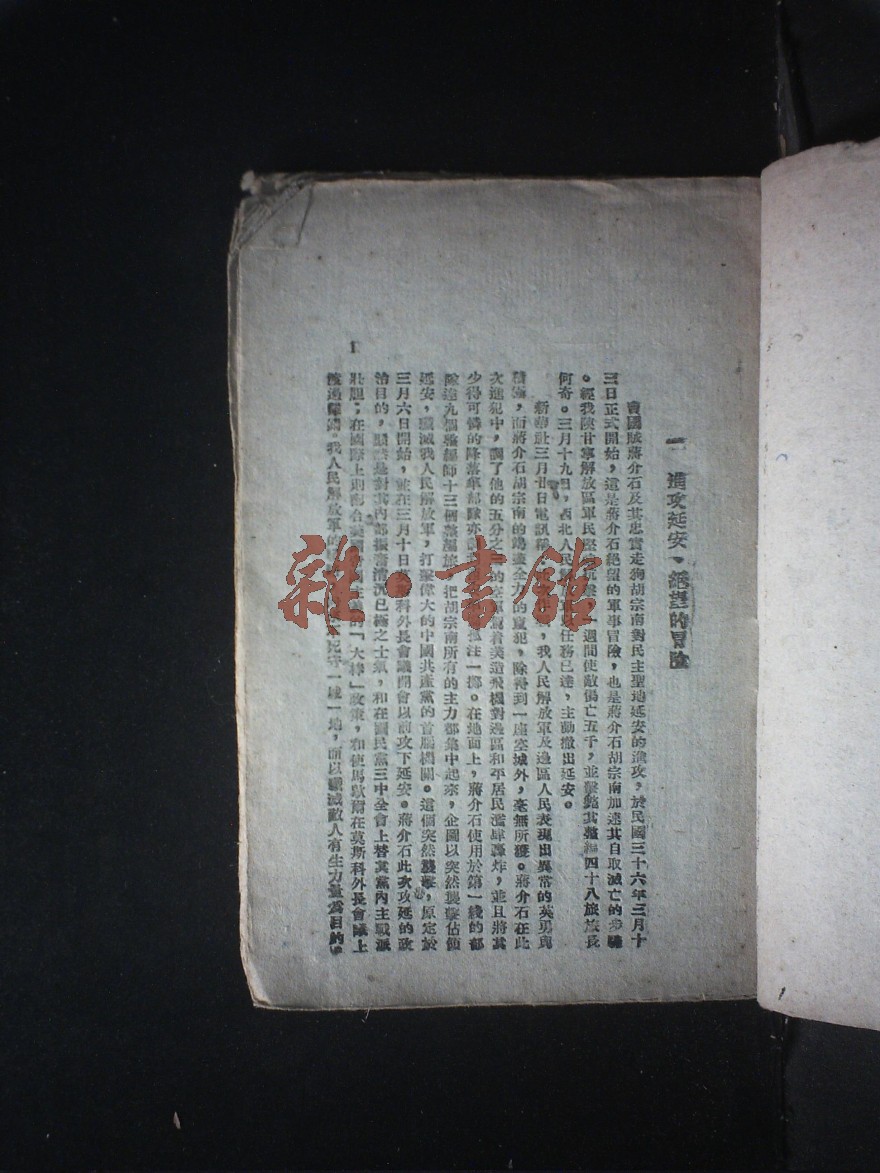 一 進攻延安、絕望的冒險
賣國賊蔣介石及其忠實走狗胡宗南對民主聖地延安的進攻，於民國三十六年三月十
三日正式開始，這是蔣介石絕望的軍事冒險，也是蔣介石胡宗南加速其自取滅亡的步驟
。經我陝甘寧解放區軍民堅決抗擊，一週間使敵傷亡五千，並擊斃其整編四十八旅旅長
何奇。三月十九日，西北人民任務已達，主動撤出延安。
新華社三月廿日電訊稱，我人民解放軍及邊區人民表現出異常的英勇與
而蔣介石胡宗南的全力的進犯，除得到一座空城外，毫無所獲。蔣介石在此
次進犯中，調了他的五分之的空軍美造飛機對邊區和平居民濫肆轟炸，並且將其
少得可憐的降落傘部隊亦孤注一擲。在地面上，蔣介石使用於第一綫的部
隊達九個整編師十三個旅，把胡宗南所有的主力都集中起來，企圖以突然襲擊佔領
延安，殲滅我人民解放軍，打擊偉大的中國共產黨的首腦機關。這個突然襲擊，原定於
三月六日開始，並在三月十日莫斯科外長會議開會以前攻下延安。蔣介石此次攻延的政
治目的，是對其內部情況已極之士氣，和在國民黨三中全會上替其黨內主戰派
壯膽；在國際上則配合的「大棒」政策，和使馬歇爾在莫斯科外長會議上
我人民解放軍的死守一城一地，而以殲滅敵人有生力量爲目的
1
雜·書館